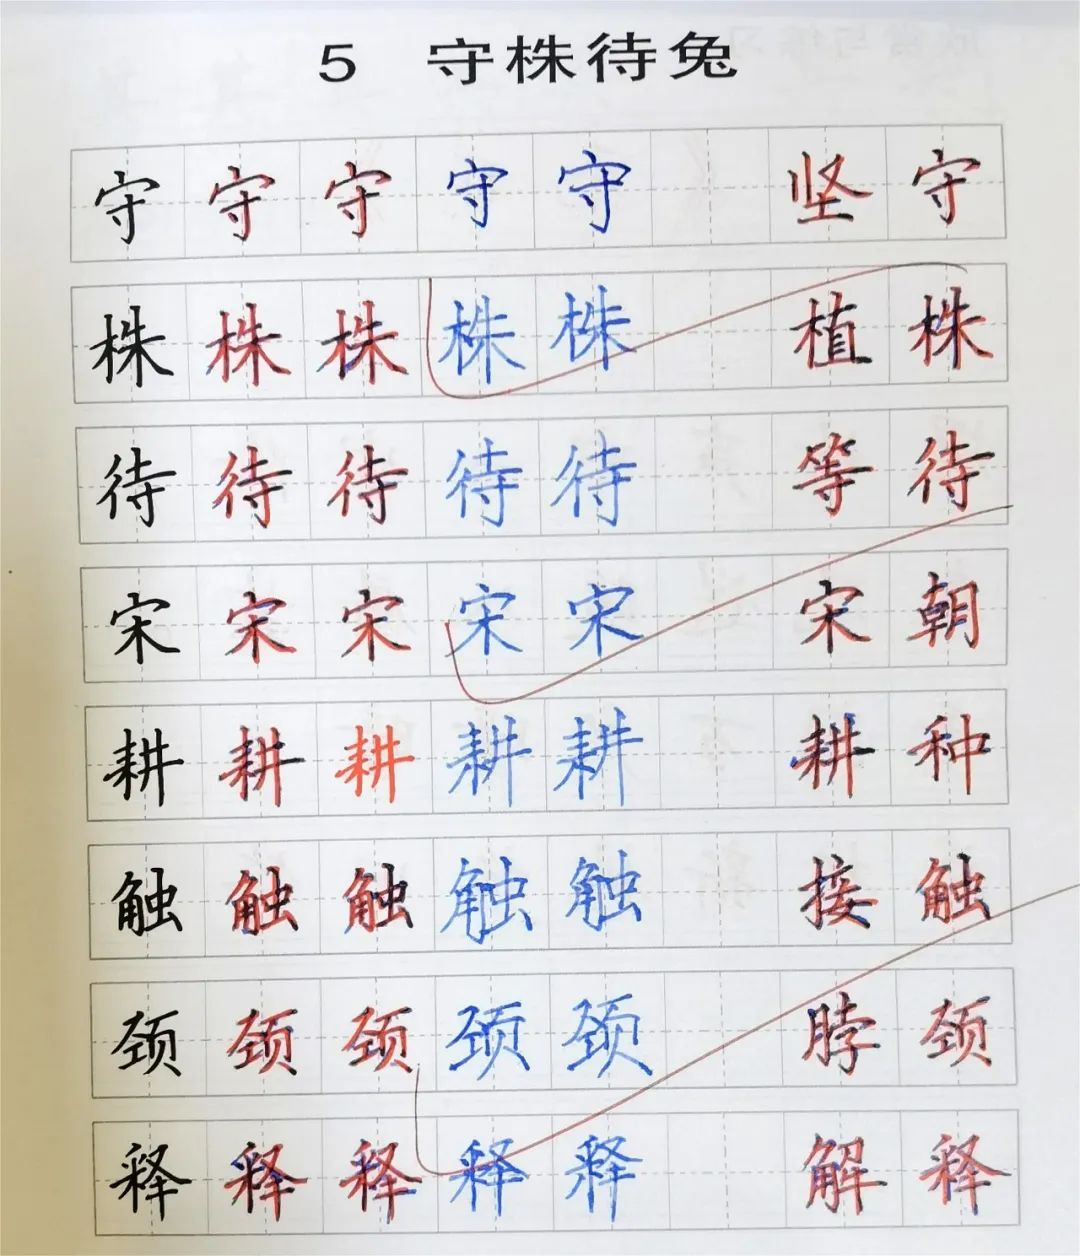 5 守株待兔
守 守 守 守 守 坚 守
株 株 株 株 株 植 株
待 待 待 待 待 等 待
宋 宋 宋 宋 宋 宋 朝
耕 耕 耕 耕 耕 耕 种
触 触 触 触 触 接 触
颈 颈 颈 颈 颈 脖 颈
释 释 释 释 释 解 释